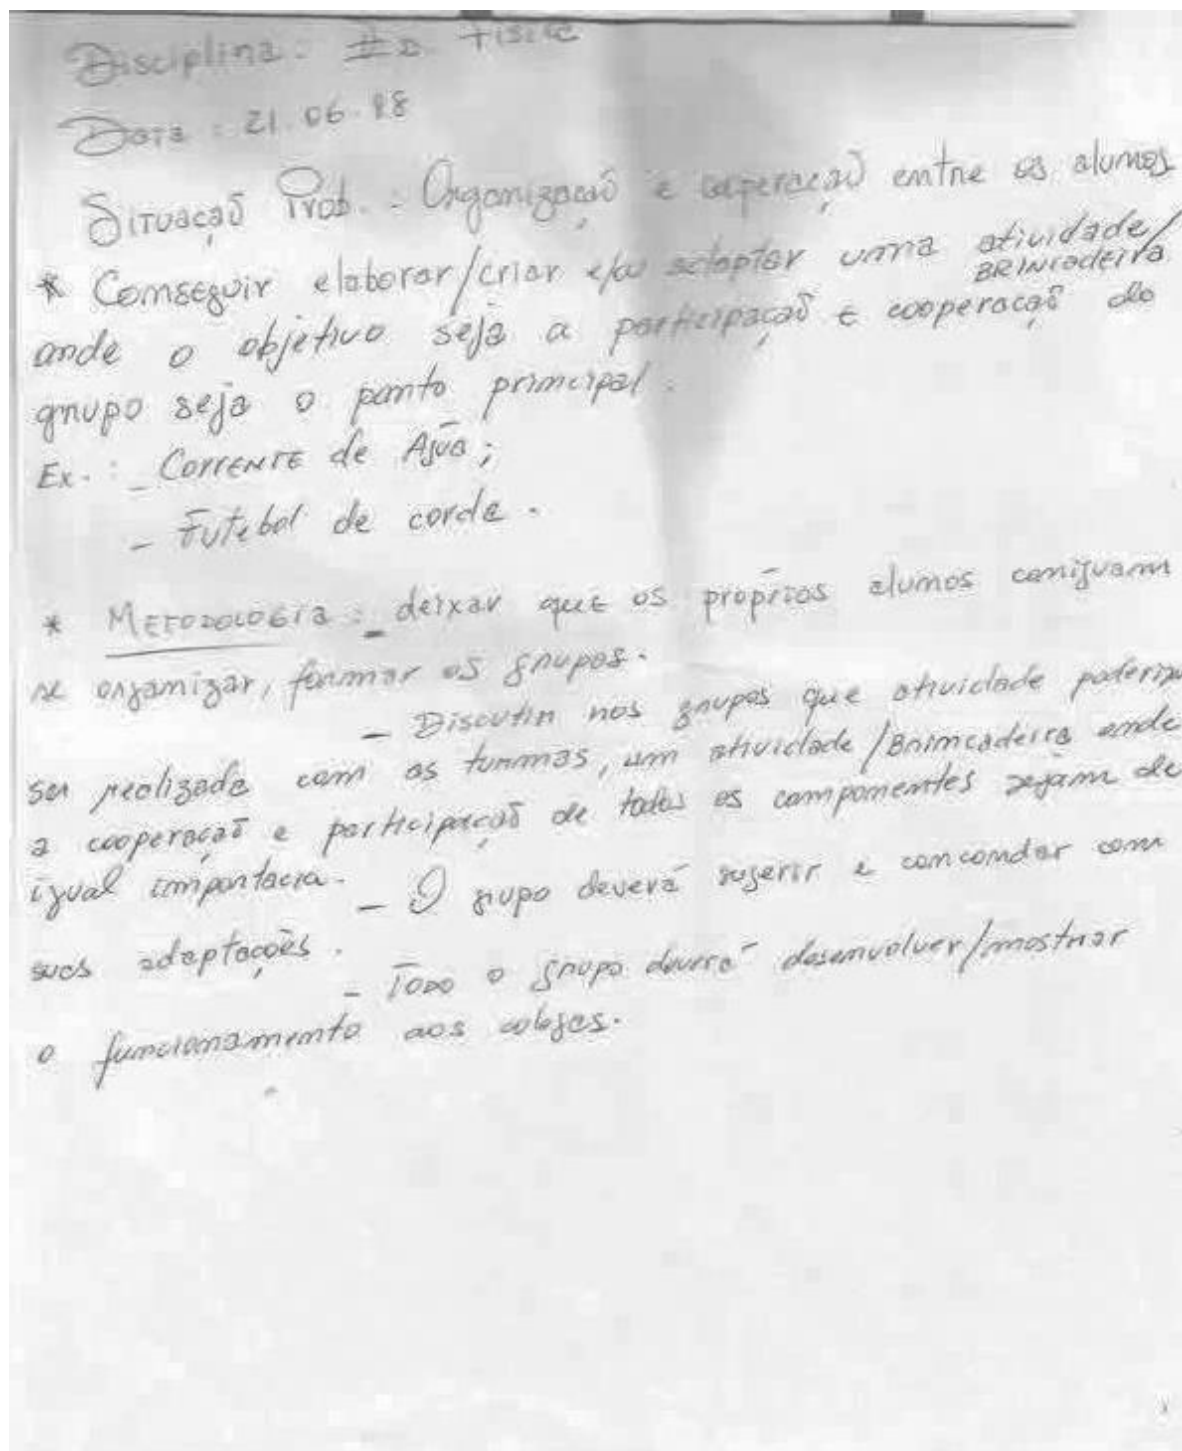 Disciplina: Ed. Física
Data: 21.06.98
Situação Prob.: Organização e cooperação entre os alunos
* Conseguir elaborar/criar e/ou adaptar uma atividade/
BRINCADEIRA
onde o objetivo seja a participação e cooperação do
grupo seja o ponto principal.
Ex.: - CORRENTE de Água;
- Futebol de corda.
* METODOLOGIA: - deixar que os próprios alunos consigam
se organizar, formar os grupos.
- Discutir nos grupos que atividade poderia
ser realizada com as turmas, um atividade/Brincadeira onde
a cooperação e participação de todos os componentes sejam de
igual importacia.
- O grupo deverá sugerir e concordar com
suas adaptações.
- Todo o grupo deverá desenvolver/mostrar
o funcionamento aos colegas.